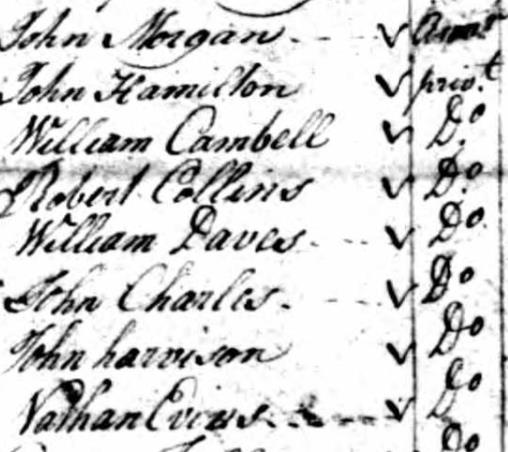 John Morgan
John Hamilton privt
William Cambell Do
Robert Collins Do
William Daves Do
John Charles Do
John harvison Do
Nathan Evins Do
Do